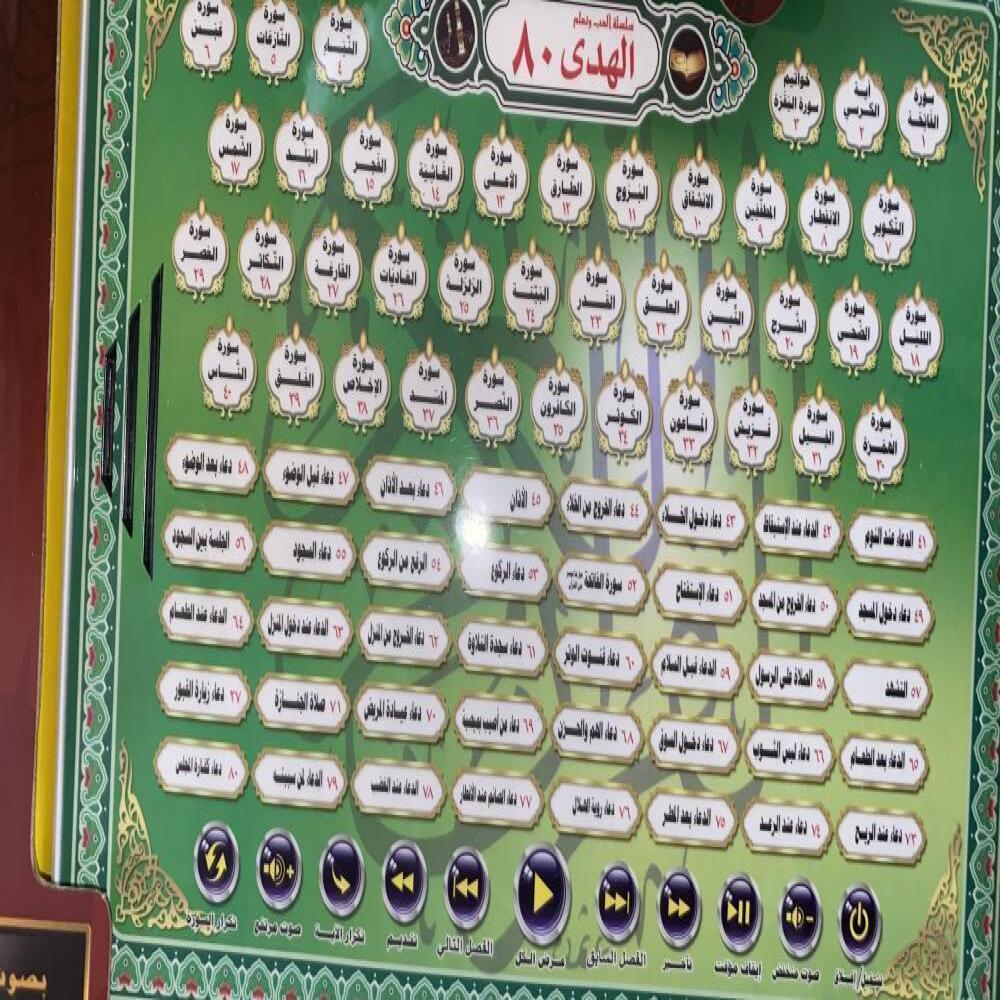 سلسلة إلعب وتعلم
الهدى ٨٠
سورة الفاتحة ١
آية الكرسي ٢
خواتيم سورة البقرة ٣
سورة النبإ ٤
سورة النازعات ٥
سورة عبس ٦
سورة التكوير ٧
سورة الانفطار ٨
سورة المطففين ٩
سورة الانشقاق ١٠
سورة البروج ١١
سورة الطارق ١٢
سورة الأعلى ١٣
سورة الغاشية ١٤
سورة الفجر ١٥
سورة البلد ١٦
سورة الشمس ١٧
سورة الليل ١٨
سورة الضحى ١٩
سورة الشرح ٢٠
سورة التين ٢١
سورة العلق ٢٢
سورة القدر ٢٣
سورة البينة ٢٤
سورة الزلزلة ٢٥
سورة العاديات ٢٦
سورة القارعة ٢٧
سورة التكاثر ٢٨
سورة العصر ٢٩
سورة الهمزة ٣٠
سورة الفيل ٣١
سورة قريش ٣٢
سورة الماعون ٣٣
سورة الكوثر ٣٤
سورة الكافرون ٣٥
سورة النصر ٣٦
سورة المسد ٣٧
سورة الإخلاص ٣٨
سورة الفلق ٣٩
سورة الناس ٤٠
٤١ الدعاء عند النوم
٤٢ الدعاء عند الإستيقاظ
٤٣ دعاء دخول الخلاء
٤٤ دعاء الخروج من الخلاء
٤٥ الأذان
٤٦ دعاء بعد الأذان
٤٧ دعاء قبل الوضوء
٤٨ دعاء بعد الوضوء
٤٩ دعاء دخول المسجد
٥٠ دعاء الخروج من المسجد
٥١ دعاء الإستفتاح
٥٢ سورة الفاتحة
٥٣ دعاء الركوع
٥٤ الرفع من الركوع
٥٥ دعاء السجود
٥٦ الجلسة بين السجود
٥٧ التشهد
٥٨ الصلاة على الرسول
٥٩ الدعاء قبل السلام
٦٠ دعاء قنوت الوتر
٦١ دعاء سجدة التلاوة
٦٢ دعاء الخروج من المنزل
٦٣ الدعاء عند دخول المنزل
٦٤ الدعاء عند الطعام
٦٥ الدعاء بعد الطعام
٦٦ دعاء لبس الثوب
٦٧ دعاء دخول السوق
٦٨ دعاء الهم والحزن
٦٩ دعاء من أصيب بمصيبة
٧٠ دعاء عيادة المريض
٧١ صلاة الجنازة
٢٧ دعاء زيارة القبور
٧٣ دعاء عند الريح
٧٤ دعاء عند الرعد
٧٥ الدعاء بعد المطر
٧٦ دعاء رؤية الهلال
٧٧ دعاء الصائم عند الأفطار
٧٨ الدعاء عند الغضب
٧٩ الدعاء لمن سببته
٨٠ دعاء كفارة المجلس
تشغيل/إغلاق
صوت منخفض
إيقاف مؤقت
تأخير
الفصل السابق
عرض الكل
الفصل التالي
تقديم
تكرار الآية
صوت مرتفع
تكرار السورة
بصوت